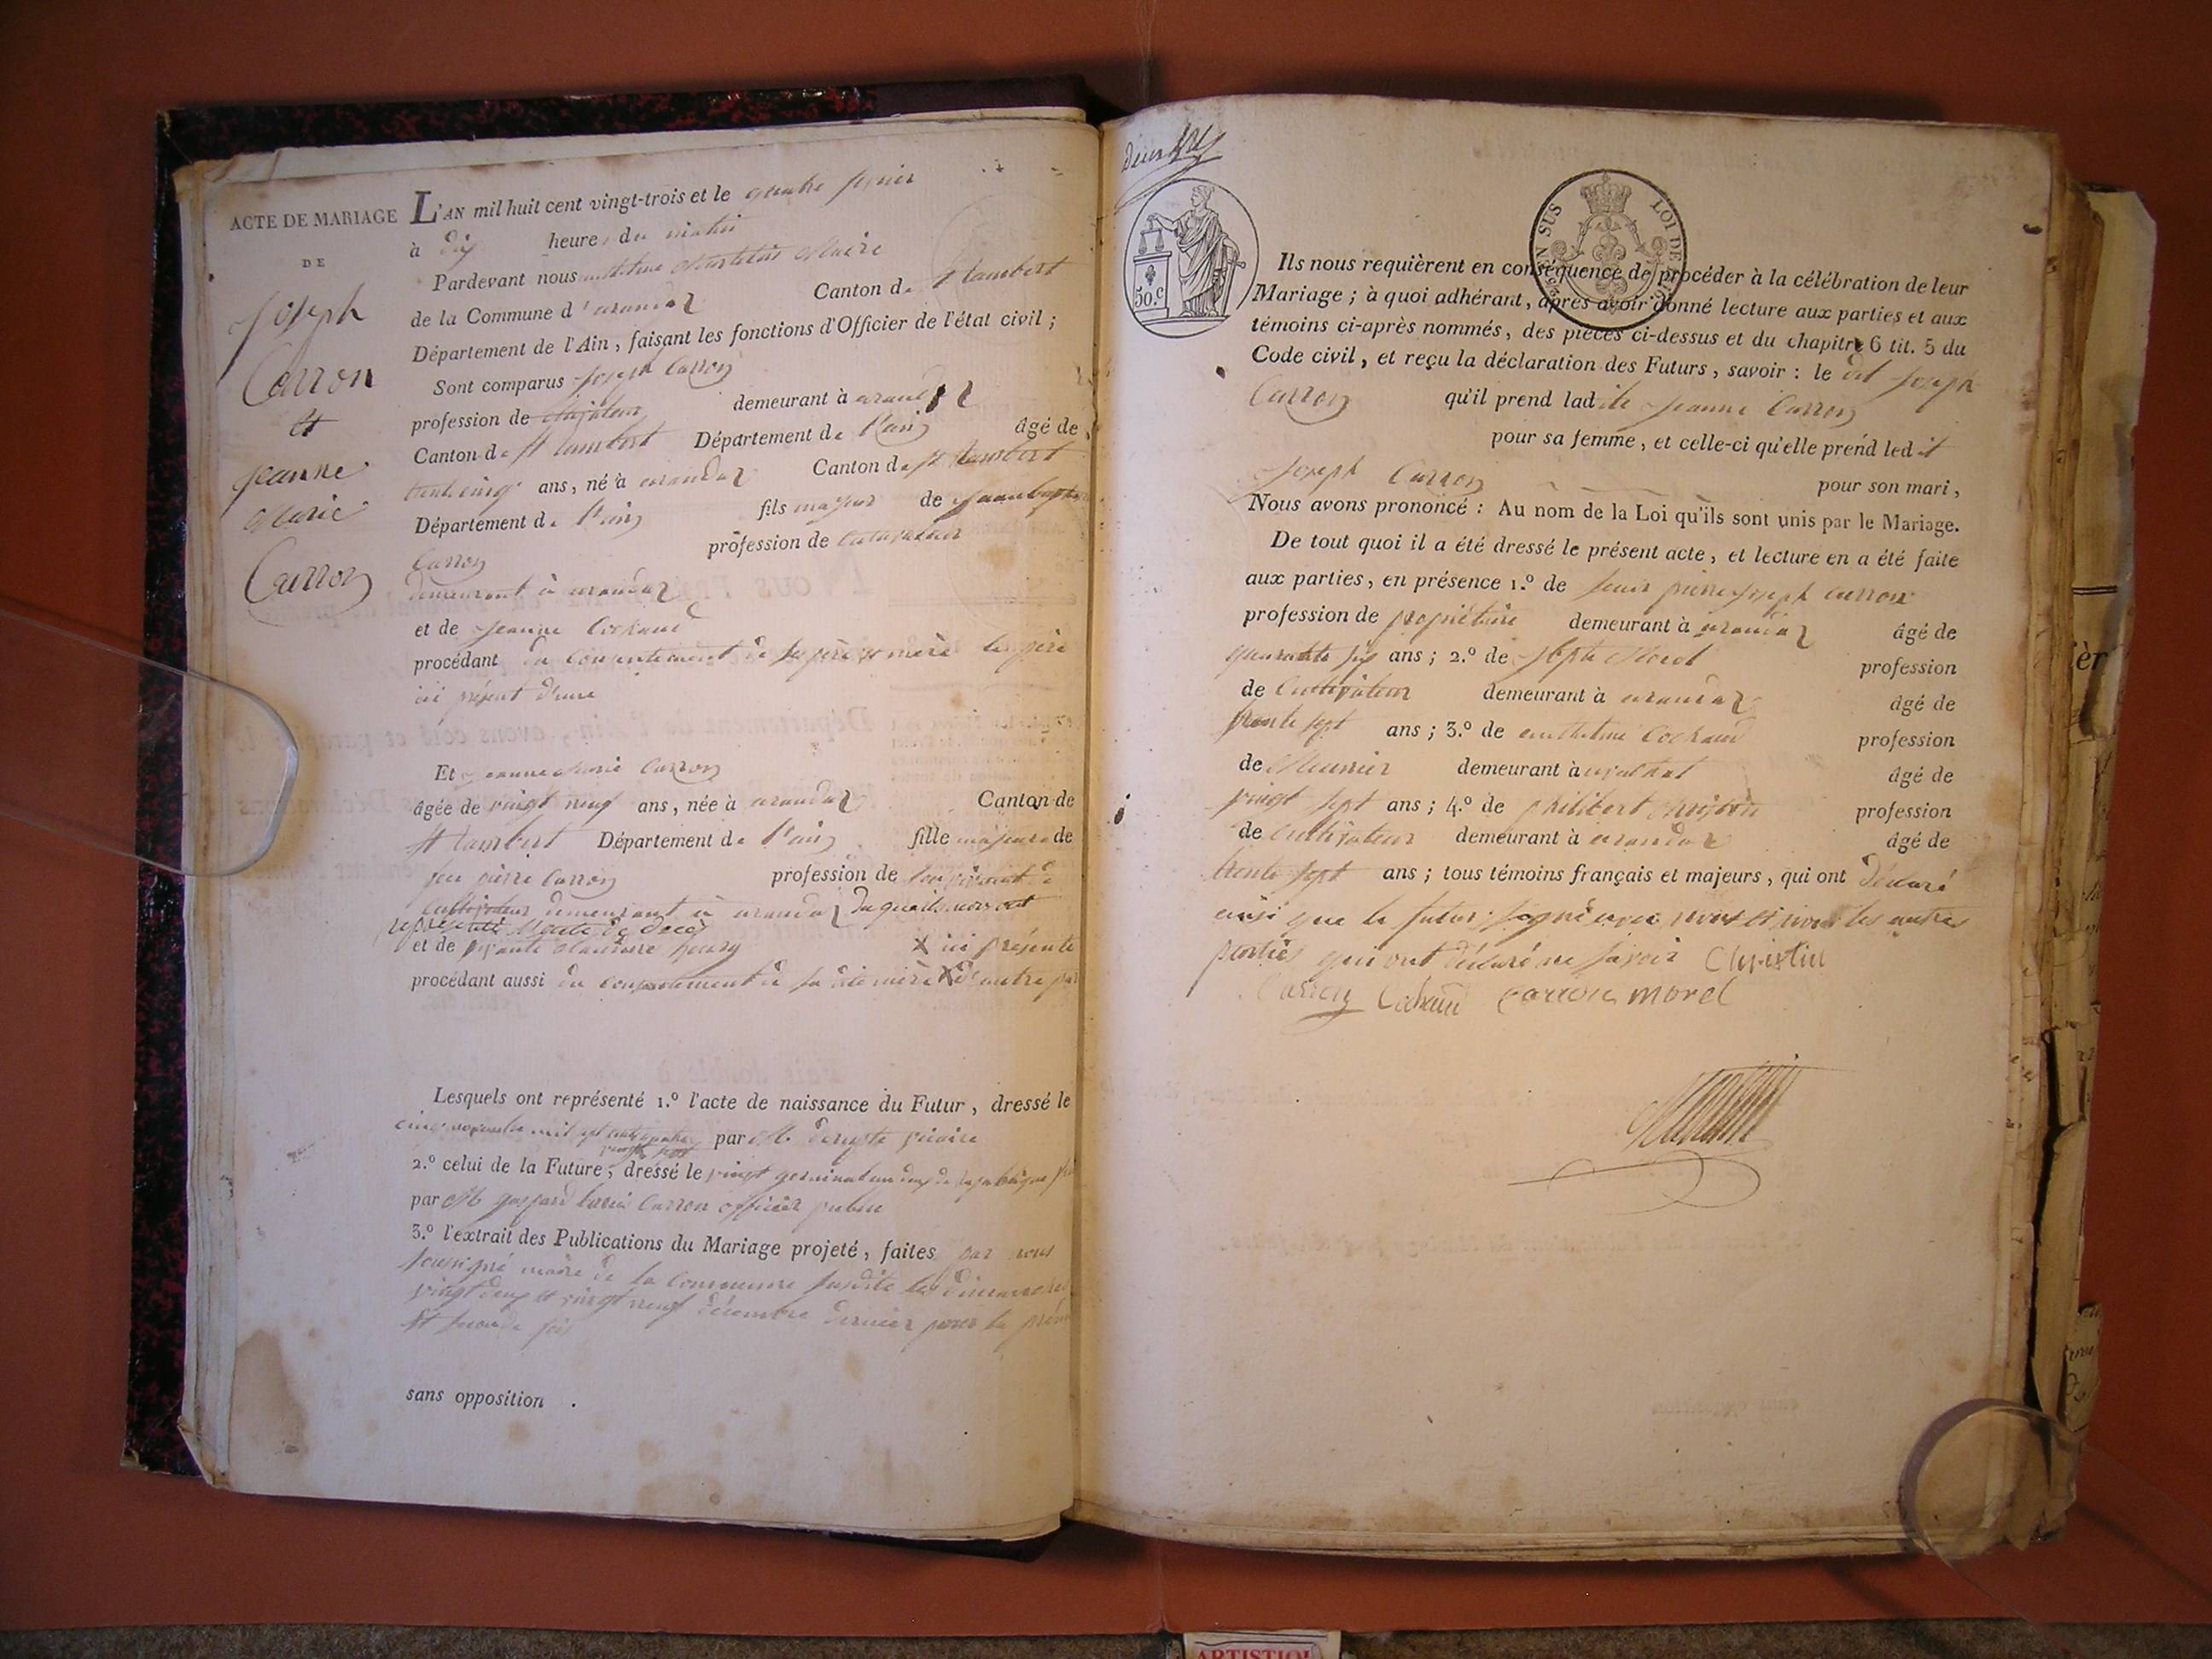 ACTE DE MARIAGE
DE
Joseph
Carron
et
Jeanne
Marie
Carron
L'AN mil huit cent vingt-trois et le quatre
à dix heures du matin
Pardevant nous Maire
de la Commune d'arandaz Canton de St Rambert
Département de l'Ain, faisant les fonctions d'Officier de l'état civil ;
Sont comparus Joseph Carron
profession de demeurant à arandaz
Canton de St Rambert Département de l'ain âgé de
trente cinq ans, né à arandaz Canton de St Rambert
Département de l'ain fils majeur de Jean baptiste
Carron profession de cultivateur
demeurant à arandaz
et de Jeanne Cochaud
procédant du consentement de ses père et mère le père
ici présent d'une
Et Jeanne Marie Carron
âgée de vingt neuf ans, née à arandaz Canton de
St Rambert Département de l'ain fille majeure de
feu pierre Carron profession de son vivant de
cultivateur demeurant à arandaz duquel ils nous ont
représenté l'acte de décès
et de henry X ici présente
procédant aussi du consentement de sa dite mère X d'autre part
Lesquels ont représenté 1.º l'acte de naissance du Futur, dressé le
cinq mil sept cent quatre par M. vicaire
vingt sept
2.º celui de la Future, dressé le vingt germinal an deux de la république
par M. gaspard Carron officier public
3.º l'extrait des Publications du Mariage projeté, faites par nous
soussigné maire de la Commune susdite les dimanches
vingt deux et vingt neuf décembre dernier pour la première
et seconde fois
sans opposition .
50.c
SUS
LOI DE
Ils nous requièrent en conséquence de procéder à la célébration de leur
Mariage ; à quoi adhérant, après avoir donné lecture aux parties et aux
témoins ci-après nommés, des pièces ci-dessus et du chapitre 6 tit. 5 du
Code civil, et reçu la déclaration des Futurs, savoir : le dit Joseph
Carron qu'il prend ladite Jeanne Carron
pour sa femme, et celle-ci qu'elle prend ledit
Joseph Carron pour son mari,
Nous avons prononcé : Au nom de la Loi qu'ils sont unis par le Mariage.
De tout quoi il a été dressé le présent acte, et lecture en a été faite
aux parties, en présence 1.º de sieur pierre Joseph Carron
profession de propriétaire demeurant à arandaz âgé de
quarante six ans ; 2.º de Morel profession
de Cultivateur demeurant à arandaz âgé de
trente sept ans ; 3.º de anthelme Cochaud profession
de Meunier demeurant à âgé de
vingt sept ans ; 4.º de philibert profession
de Cultivateur demeurant à arandaz âgé de
trente sept ans ; tous témoins français et majeurs, qui ont déclaré
ainsi que le futur signé avec nous et non les autres
parties qui ont déclaré ne savoir Christin
Carron Cochaud carron morel
ARTISTIQU